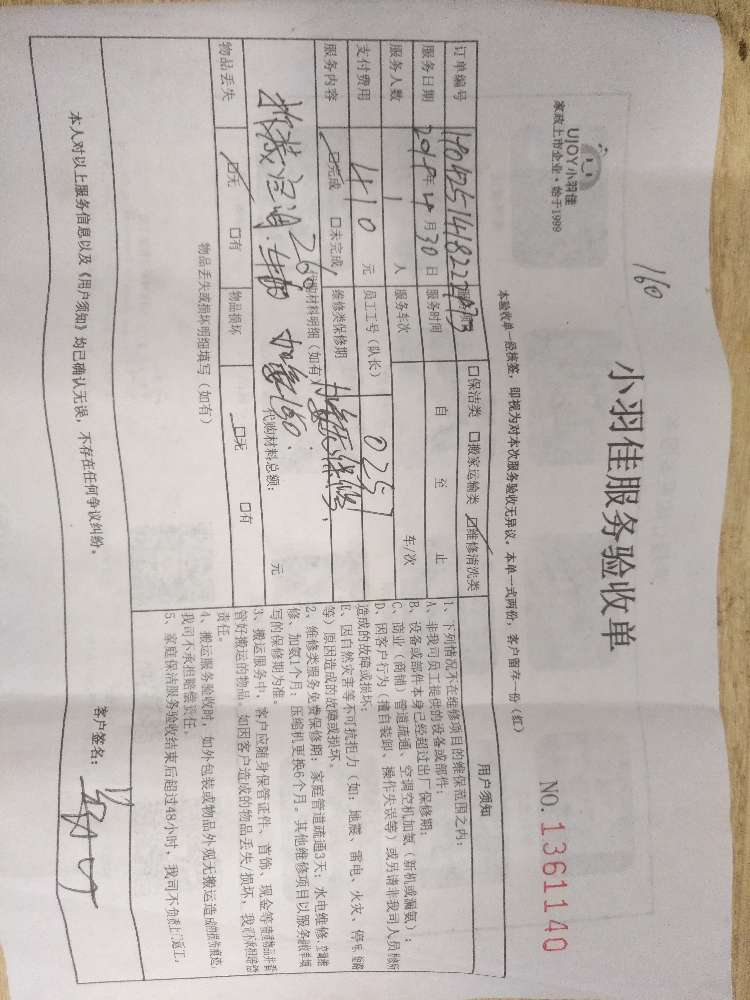 160
UJOY小羽佳
家政上市企业·始于1999
小羽佳服务验收单
NO.1361140
本验收单一经核签，即视为对本次服务验收无异议。本单一式两份，客户留存一份（红）
订单编号
□保洁类 □搬家运输类 ☑维修清洗类
服务日期 年 4 月 30 日 服务时间 自 至 止
服务人数 1 人 服务车次 车/次
支付费用 410 元 员工工号（队长） 025
服务内容 ☑完成 □未完成 维修类保修期
代购材料明细（如有）
260
加氟150.
代购材料总额： 元
物品丢失 ☑无 □有 物品损坏 □无 □有
物品丢失或损坏明细填写（如有）
用户须知
1、下列情况不在维修项目的维保范围之内：
A、非我司员工提供的设备或部件；
B、设备或部件本身已经超过出厂保修期；
C、商业（商铺）管道疏通、空调空机加氨（新机或漏氨）；
D、因客户行为（擅自装卸、操作失误等）或另请非我司人员
造成的故障或损坏；
E、因自然灾害等不可抗拒力（如：地震、雷电、火灾、停电
等）原因造成的故障或损坏。
2、维修类服务免费保修期：家庭管道疏通3天；水电维修、
修、加氨1个月；压缩机更换6个月。其他维修项目以服务
写的保修期为准。
3、搬运服务中，客户应随身保管证件、首饰、现金等
管好搬运的物品。如因客户造成的物品丢失/损坏，我
责任。
4、搬运服务验收时，如外包装或物品外观无搬运造
我司不承担赔偿责任。
5、家庭保洁服务验收结束后超过48小时，我司不负责上门返工。
本人对以上服务信息以及《用户须知》均已确认无误，不存在任何争议纠纷。
客户签名：